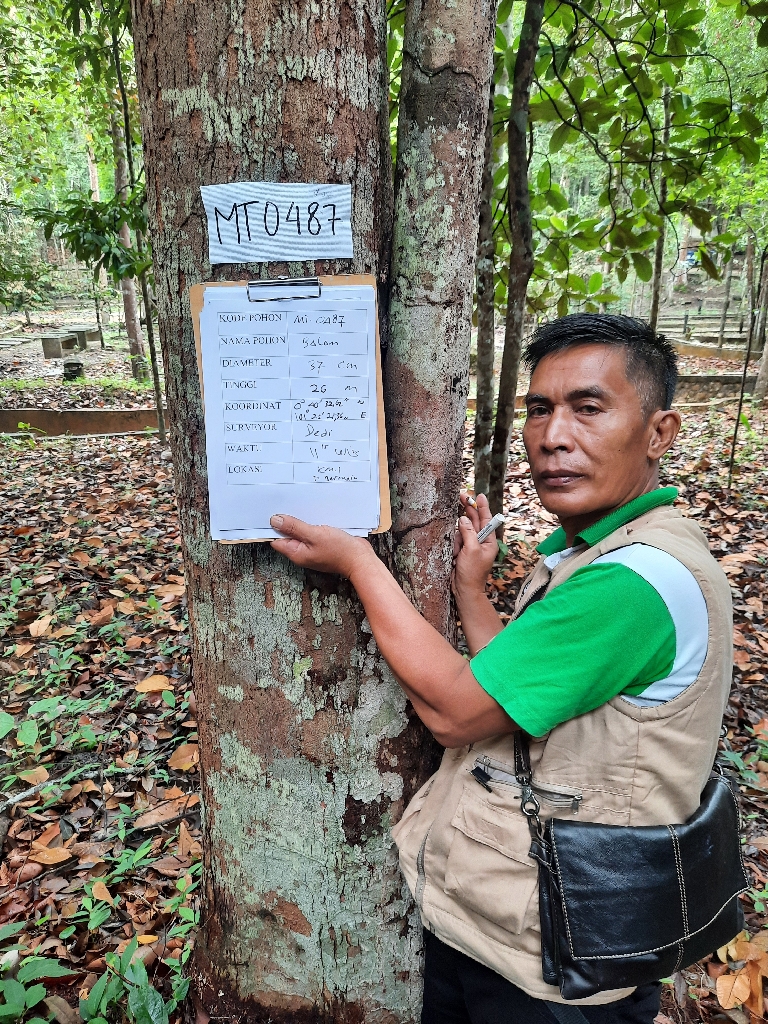 MT0487
KODE POHON MT 0487
NAMA POHON Balam
DIAMETER 37 cm
TINGGI 26 m
KOORDINAT 0° 40' N
101° E
SURVEYOR Dedi
WAKTU 11
LOKASI KM.1